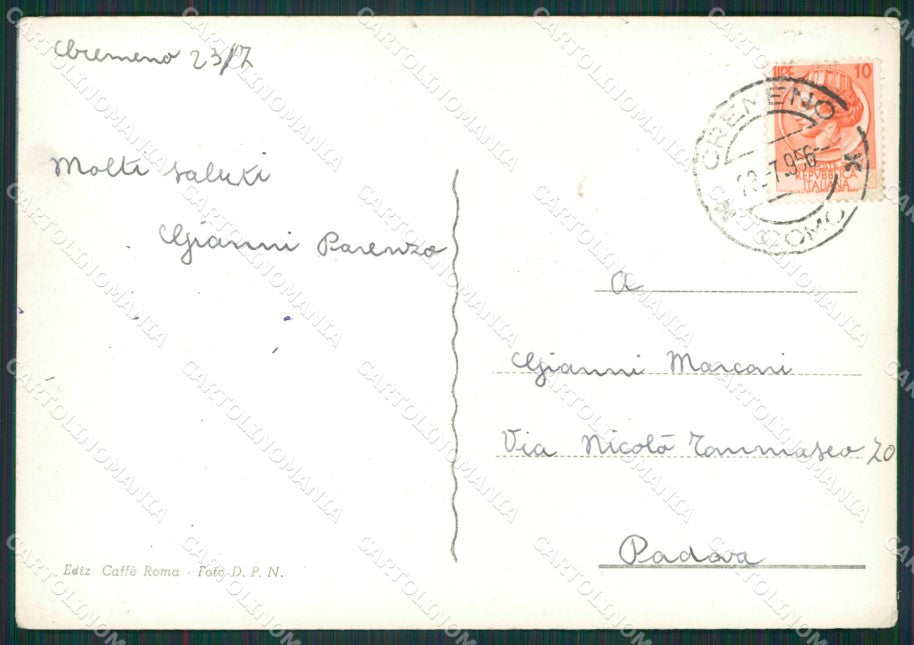 Cremeno 23/7
Molti saluti
Gianni Parenzo
A
Gianni Marconi
Via Nicolò Tommaseo 70
Padova
Ediz. Caffè Roma - Foto D. P. N.
LIRE 10
REPVBBLICA
ITALIANA
CREMENO
23-7.956
COMO
CARTOLINOMANIA